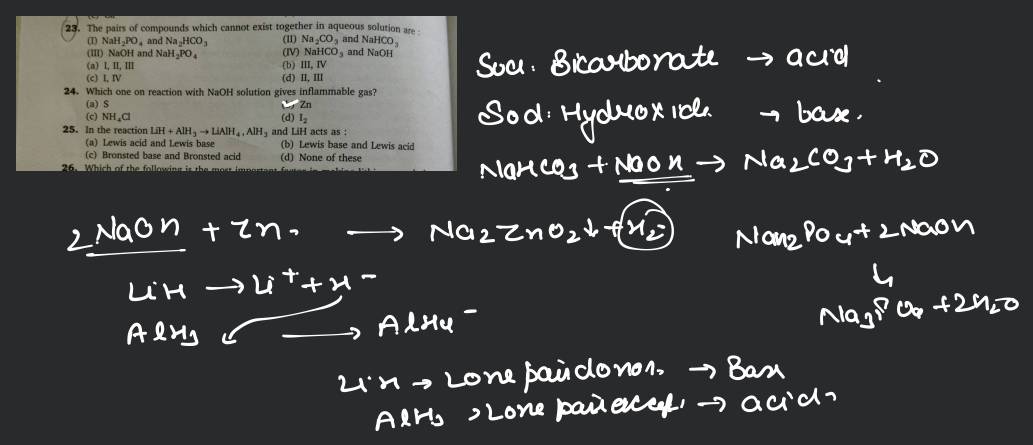 23. The pairs of compounds which cannot exist together in aqueous solution are :
(I) NaH₂PO₄ and Na₂HCO₃ (II) Na₂CO₃ and NaHCO₃
(III) NaOH and NaH₂PO₄ (IV) NaHCO₃ and NaOH
(a) I, II, III (b) III, IV
(c) I, IV (d) II, III
24. Which one on reaction with NaOH solution gives inflammable gas?
(a) S Zn
(c) NH₄Cl (d) I₂
25. In the reaction LiH + AlH₃ → LiAlH₄, AlH₃ and LiH acts as :
(a) Lewis acid and Lewis base (b) Lewis base and Lewis acid
(c) Bronsted base and Bronsted acid (d) None of these
26. Which of the following is the most important factor in
Bicarbonate → acid
Sod. Hydroxide → base.
NaHCO₃ + NaOH → Na₂CO₃ + H₂O
2 NaOH + Zn → Na₂ZnO₂↓ + H₂
NaH₂PO₄ + 2NaOH
↓
Na₃PO₄ + 2H₂O
LiH → Li⁺ + H⁻
AlH₃ → AlH₄⁻
LiH → Lone pair donor, → Base
AlH₃ → Lone pair → acid